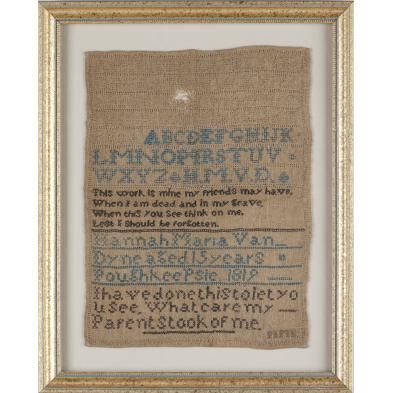 ABCDEFGHIJK
LMNOPQRSTUV
WXYZ H.M.V.D.
This work is mine my friends may have,
When I am dead and in my Grave
When this you see think on me,
Lest I should be forgotten.
Hannah Maria Van
Dyne aged 15 years
Poughkeepsie. 1819
I have done this to let yo
u see. What care my
Parents took of me.